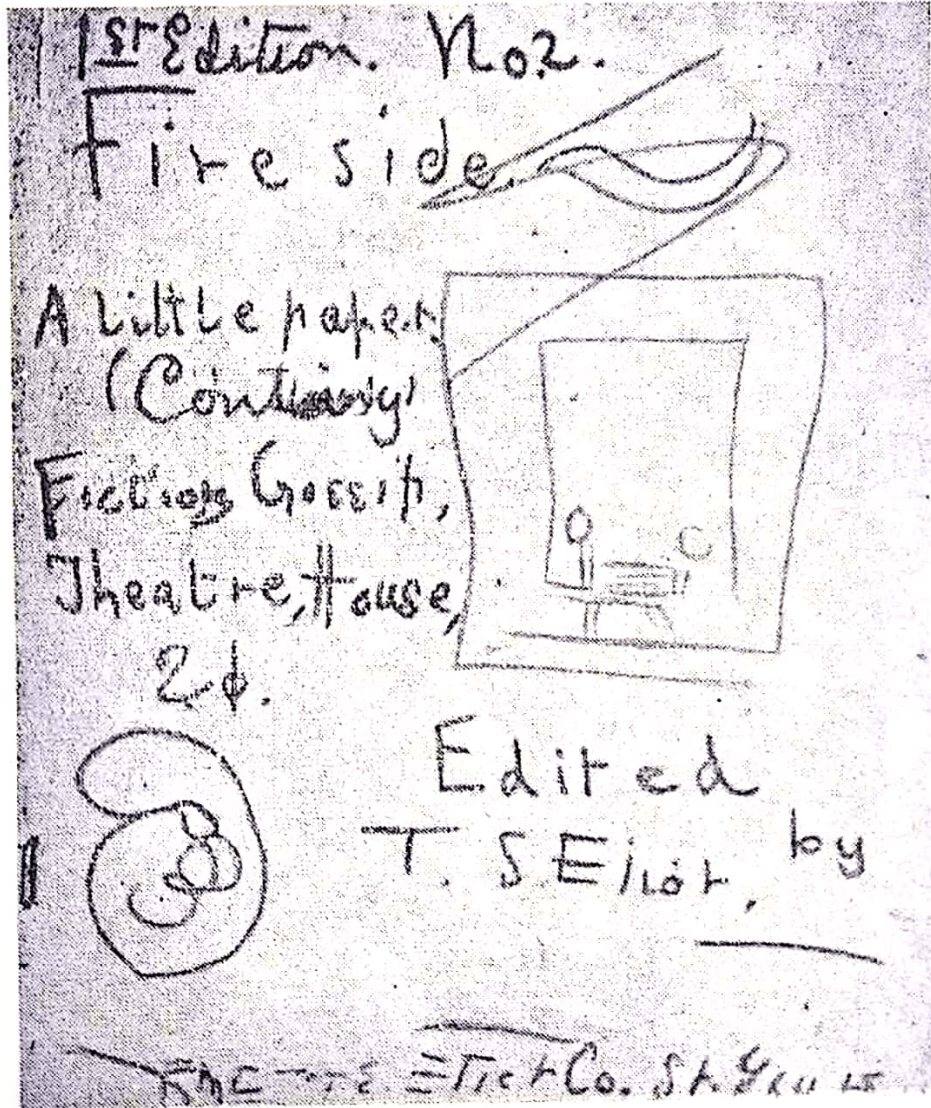 1st Edition. No 2.
Fireside.
A Little paper
(Contain
Fiction, Gossip,
Theatre, House,
2¢.
Edited
by
T. S. Eliot.
Eliot Co. St.